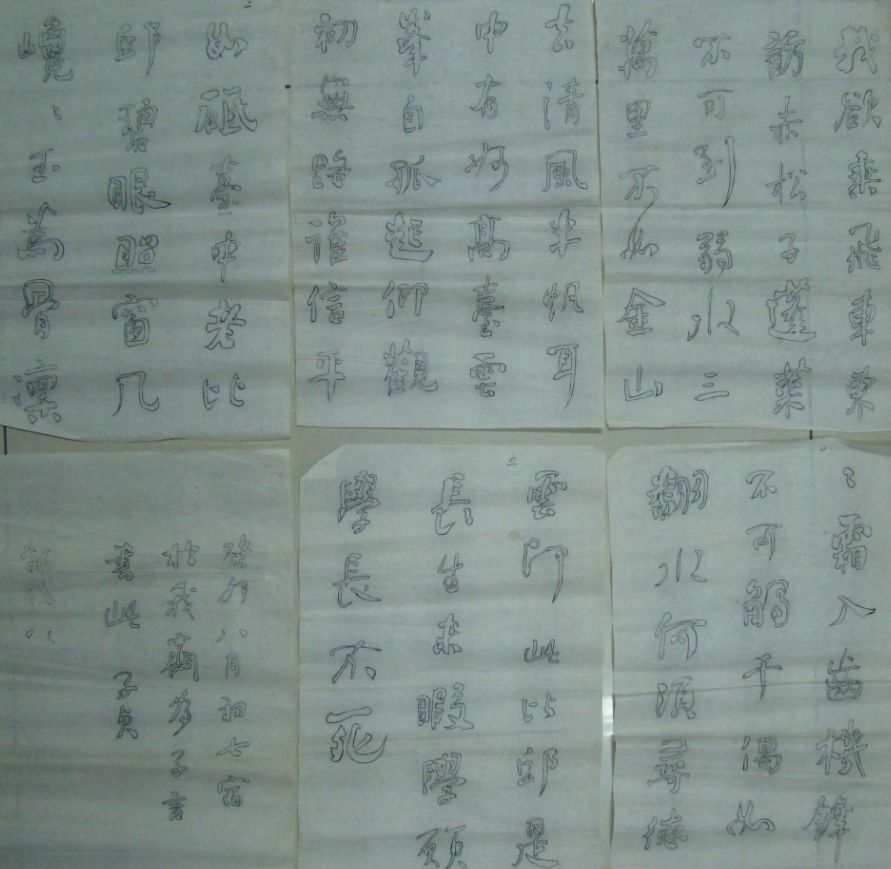 我欲乘飛車東
訪赤松子蓬萊
不可到弱水三
萬里不如金山
去清風半帆耳
中有妙高臺雲
峯自孤起仰觀
初無路誰信平
如砥臺中老比
邱碧眼照窗几
巉〻玉為骨凜
〻霜入齒機鋒
不可觸千偈如
翻水何須尋德
雲即此比邱是
長生未暇學願
學長不死
癸卯八月初七宿
於我齋為子言
書此 子貞